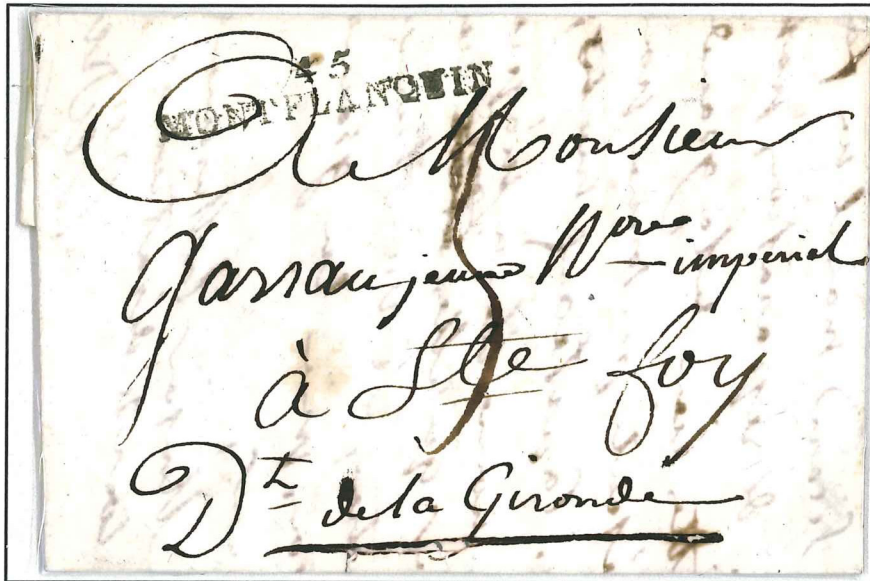 45
MONTFLANQUIN
A Monsieur
jeune Nore impérial
à Ste foy
Dt de la Gironde